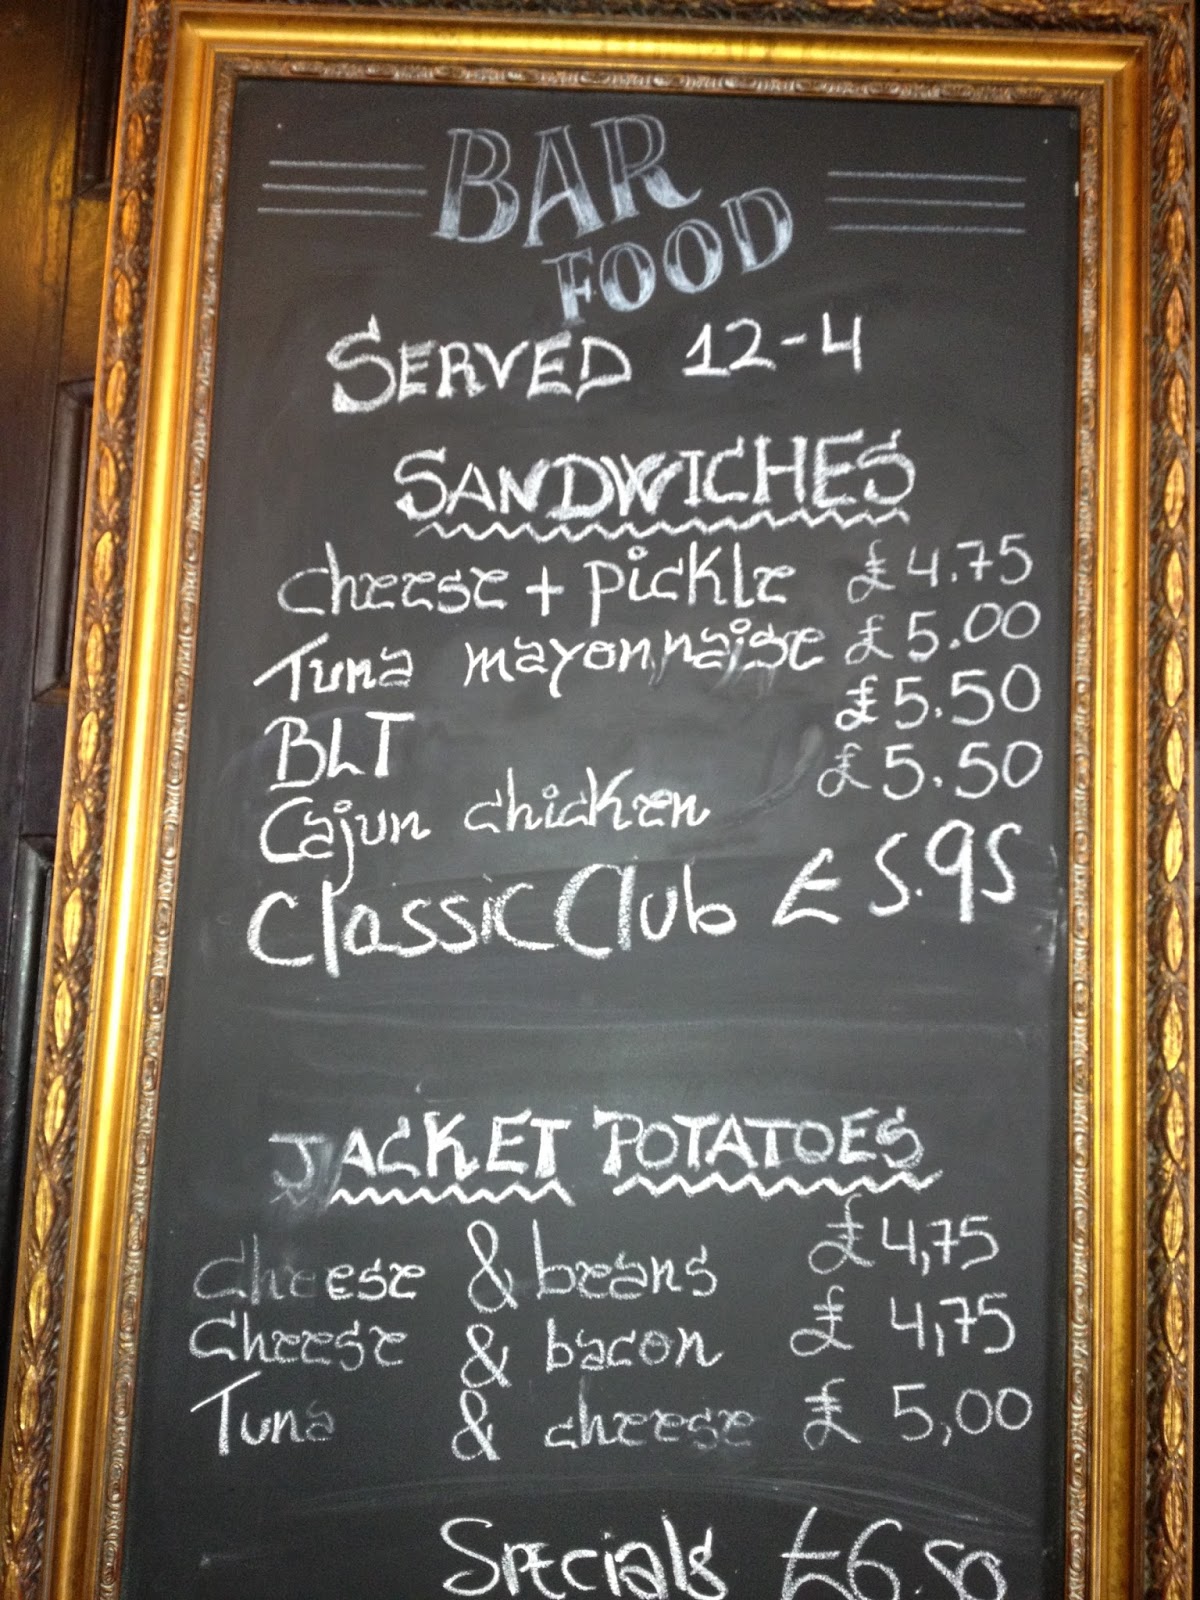 BAR
FOOD
SERVED 12-4
SANDWICHES
cheese + pickle £4.75
Tuna mayonnaise £5.00
BLT £5.50
Cajun chicken £5.50
Classic Club £5.95
JACKET POTATOES
cheese & beans £4,75
Cheese & bacon £4,75
Tuna & cheese £5,00
Specials £6.50